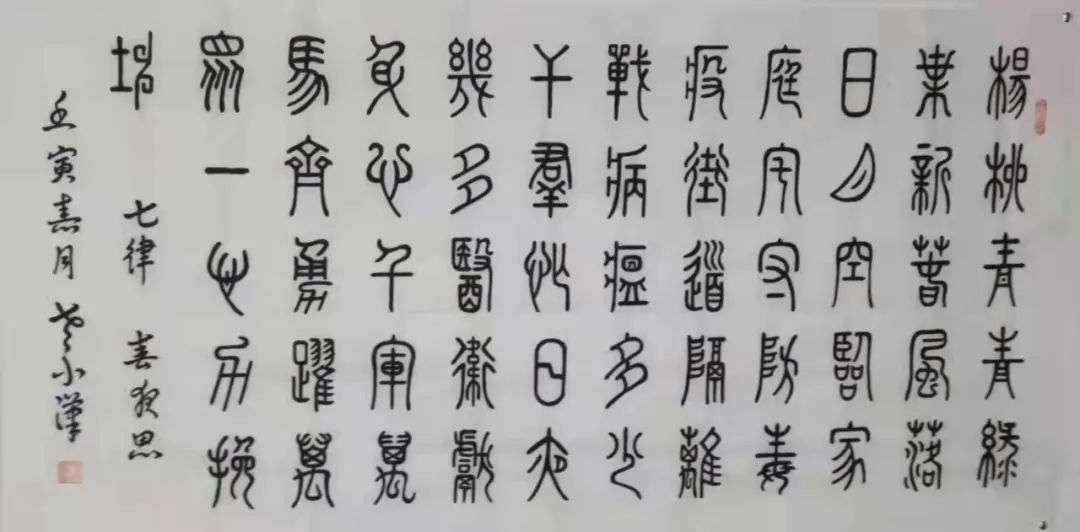 楊柳青青綠
葉新春風落
日月空臨家
庭宇守防毒
疫街道隔離
戰病瘟多少
干羣忙日夜
幾多醫衛獻
良心千軍萬
馬齊勇躍萬
眾一心力挽
坤
七律 春夜思
壬寅春月 小漢